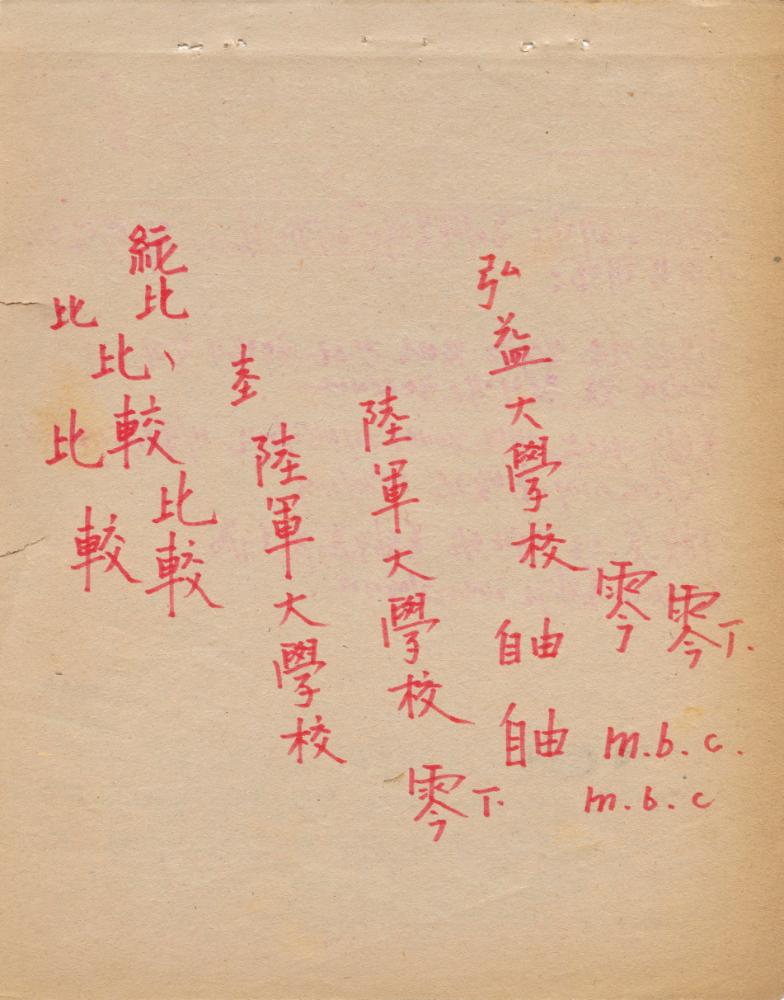 弘益大學校
零
零下.
自由
自由
m.b.c.
m.b.c
陸軍大學校
零下.
陸軍大學校
比
比較
比、較
比
比
較